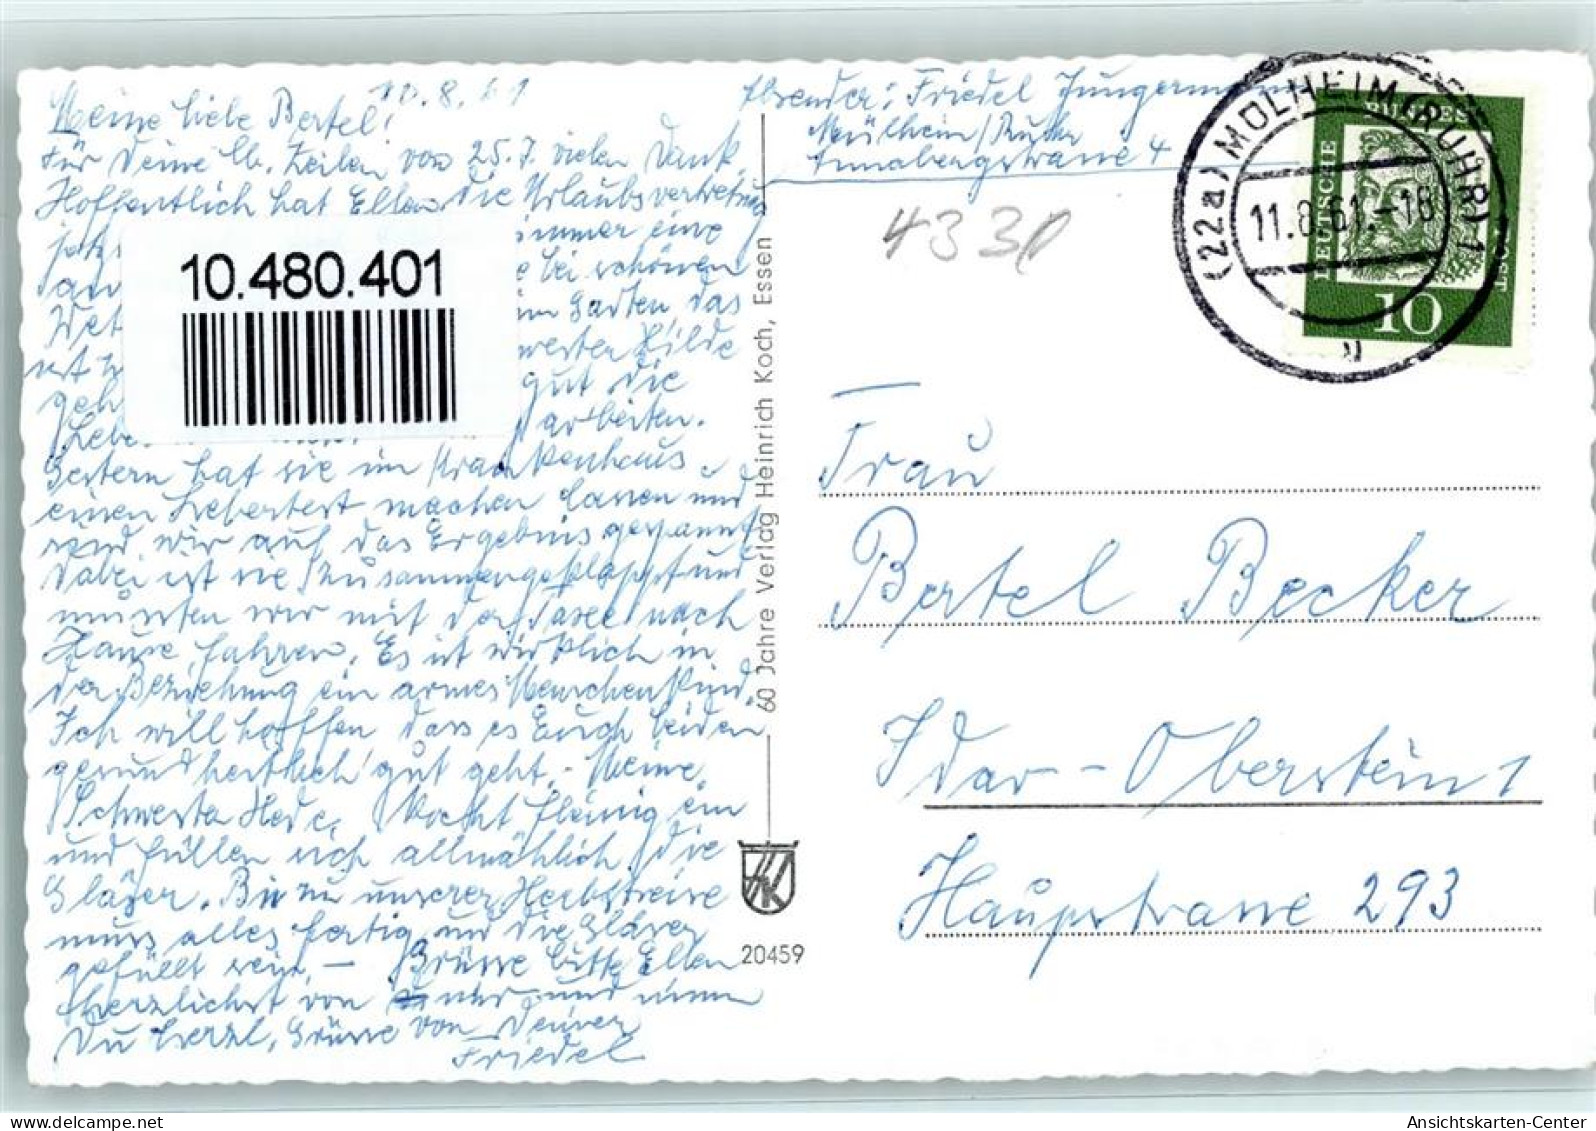 10.8.61
Meine liebe Bertel!
Für Deine lb. Zeilen von 25.7. vielen Dank,
Hoffentlich hat Ellen die Urlaubsvertretung
jetzt immer eine
bei schönem
im Garten das
Hilde
geh gut die
arbeiten.
Gestern hat sie im Krankenhaus
einen Lebertest machen lassen und
sind wir auf das Ergebnis gespannt
Dabei ist sie zusammengeklappt und
mussten wir mit der Taxe nach
Hause fahren. Es ist wirklich in
der Beziehung ein armes Menschenkind.
Ich will hoffen dass es Euch beiden
gesundheitlich gut geht. - Meine
Schwester Hede, kocht fleissig ein
und füllen sich allmählich die
Gläser. Bis zu unserer Herbstreise
muss alles fertig und die Gläser
gefüllt sein. - Grüsse bitte Ellen
herzlichst von mir und nimm
Du herzl. Grüsse von Deiner
Friedel
10.480.401
60 Jahre Verlag Heinrich Koch, Essen
HK
20459
Absender: Friedel Jungermann
Mülheim/Ruhr
Annabergstrasse 4
433
(22a) MÜLHEIM (RUHR) 1
11.8.61.-18
u
DEUTSCHE BUNDESPOST
10
Frau
Bertel Becker
Idar-Oberstein 1
Hauptstrasse 293
oldthing.de
AnsichtsKarten-Center